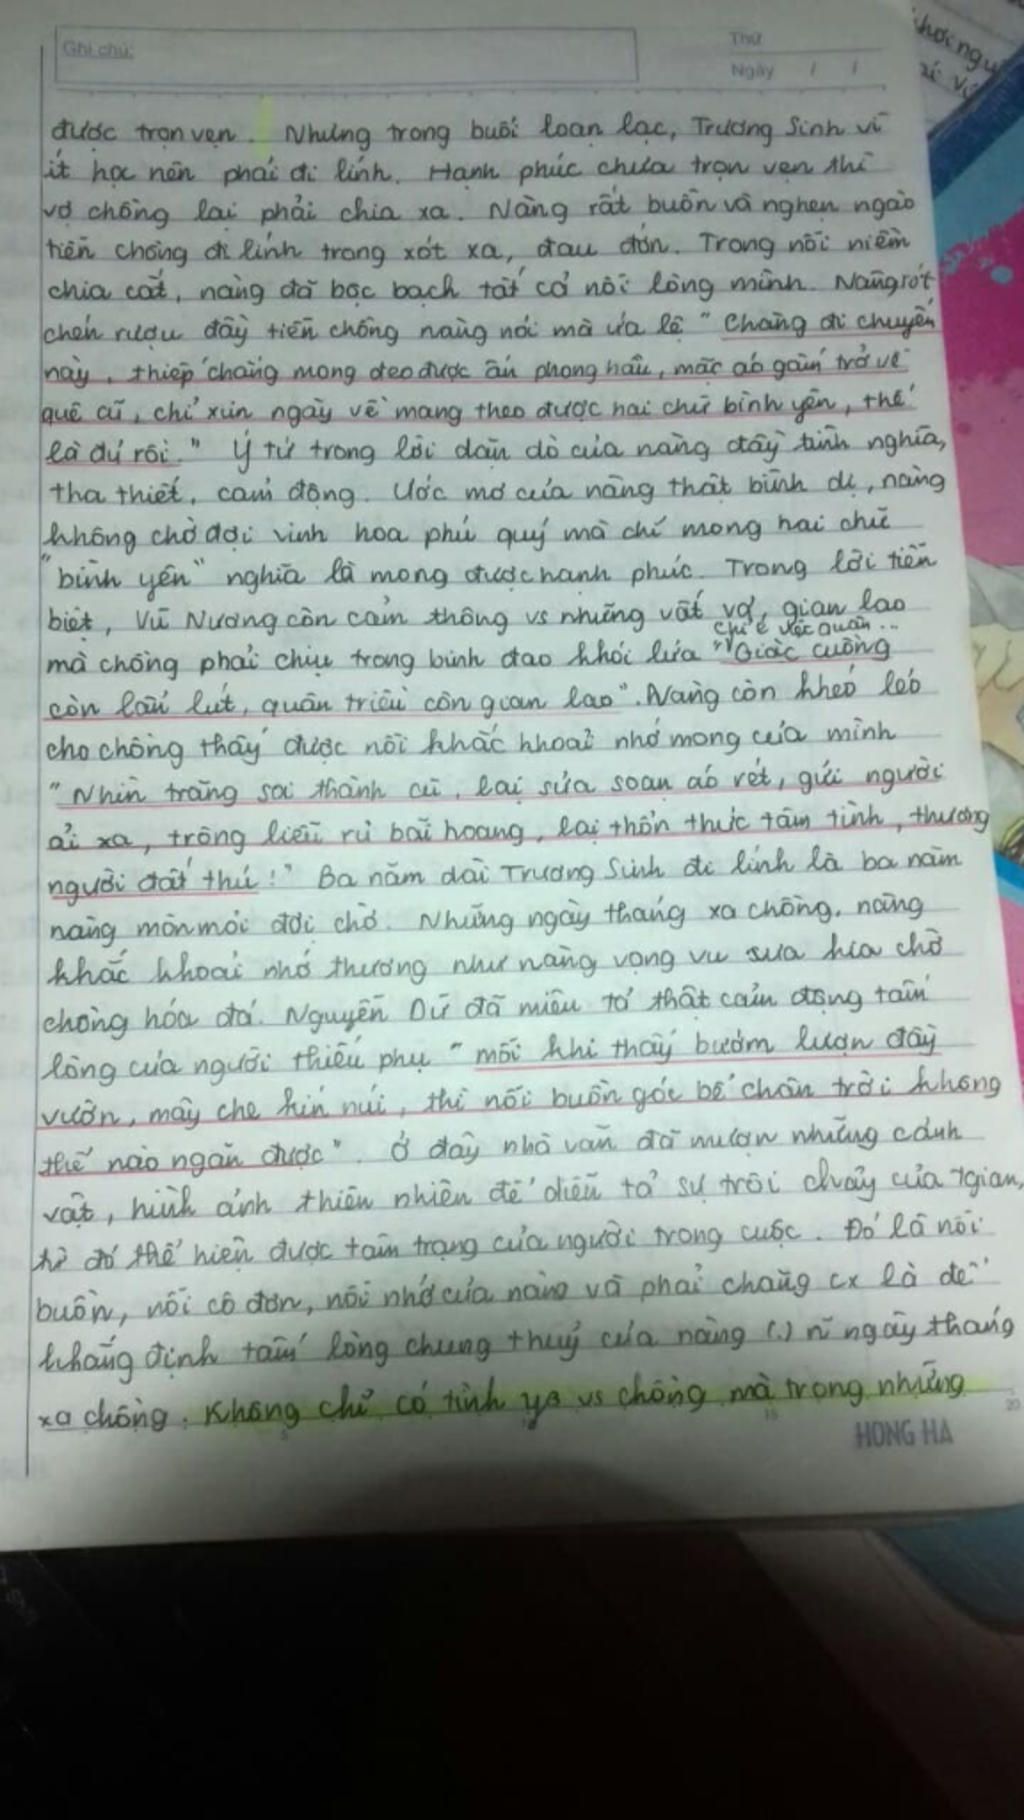 Ghi chú:
Thứ
Ngày / /
được trọn vẹn. Nhưng trong buổi loạn lạc, Trương Sinh vì
ít học nên phải đi lính. Hạnh phúc chưa trọn vẹn thì
vợ chồng lại phải chia xa. Nàng rất buồn và nghẹn ngào
tiễn chồng đi lính trong xót xa, đau đớn. Trong nỗi niềm
chia cắt, nàng đã bộc bạch tất cả nỗi lòng mình. Nàng rót
chén rượu đầy tiễn chồng nàng nói mà ứa lệ "Chàng đi chuyến
này, thiếp chẳng mong đeo được ấn phong hầu, mặc áo gấm trở về
quê cũ, chỉ xin ngày về mang theo được hai chữ bình yên, thế
là đủ rồi." Ý tứ trong lời dặn dò của nàng đầy tình nghĩa,
tha thiết, cảm động. Ước mơ của nàng thật bình dị, nàng
không chờ đợi vinh hoa phú quý mà chỉ mong hai chữ
"bình yên" nghĩa là mong được hạnh phúc. Trong lời tiễn
biệt, Vũ Nương còn cảm thông vs những vất vả, gian lao
chỉ e việc quân...
mà chồng phải chịu trong binh đao khói lửa "Giặc cuồng
còn lẩn lút, quân triều còn gian lao". Nàng còn khéo léo
cho chồng thấy được nỗi khắc khoải nhớ mong của mình
"Nhìn trăng soi thành cũ, lại sửa soạn áo rét, gửi người
ải xa, trông liễu rủ bãi hoang, lại thổn thức tâm tình, thương
người đất thú!" Ba năm dài Trương Sinh đi lính là ba năm
nàng mòn mỏi đợi chờ. Những ngày tháng xa chồng, nàng
khắc khoải nhớ thương như nàng vọng vu xưa kia chờ
chồng hóa đá. Nguyễn Dữ đã miêu tả thật cảm động tấm
lòng của người thiếu phụ "mỗi khi thấy bướm lượn đầy
vườn, mây che kín núi, thì nỗi buồn góc bể chân trời không
thể nào ngăn được". Ở đây nhà văn đã mượn những cảnh
vật, hình ảnh thiên nhiên để diễn tả sự trôi chảy của tgian,
từ đó thể hiện được tâm trạng của người trong cuộc. Đó là nỗi
buồn, nỗi cô đơn, nỗi nhớ của nàng và phải chăng cx là để
khẳng định tấm lòng chung thuỷ của nàng (.) n~ ngày tháng
xa chồng. Không chỉ có tình yo vs chồng mà trong những
HONG HA